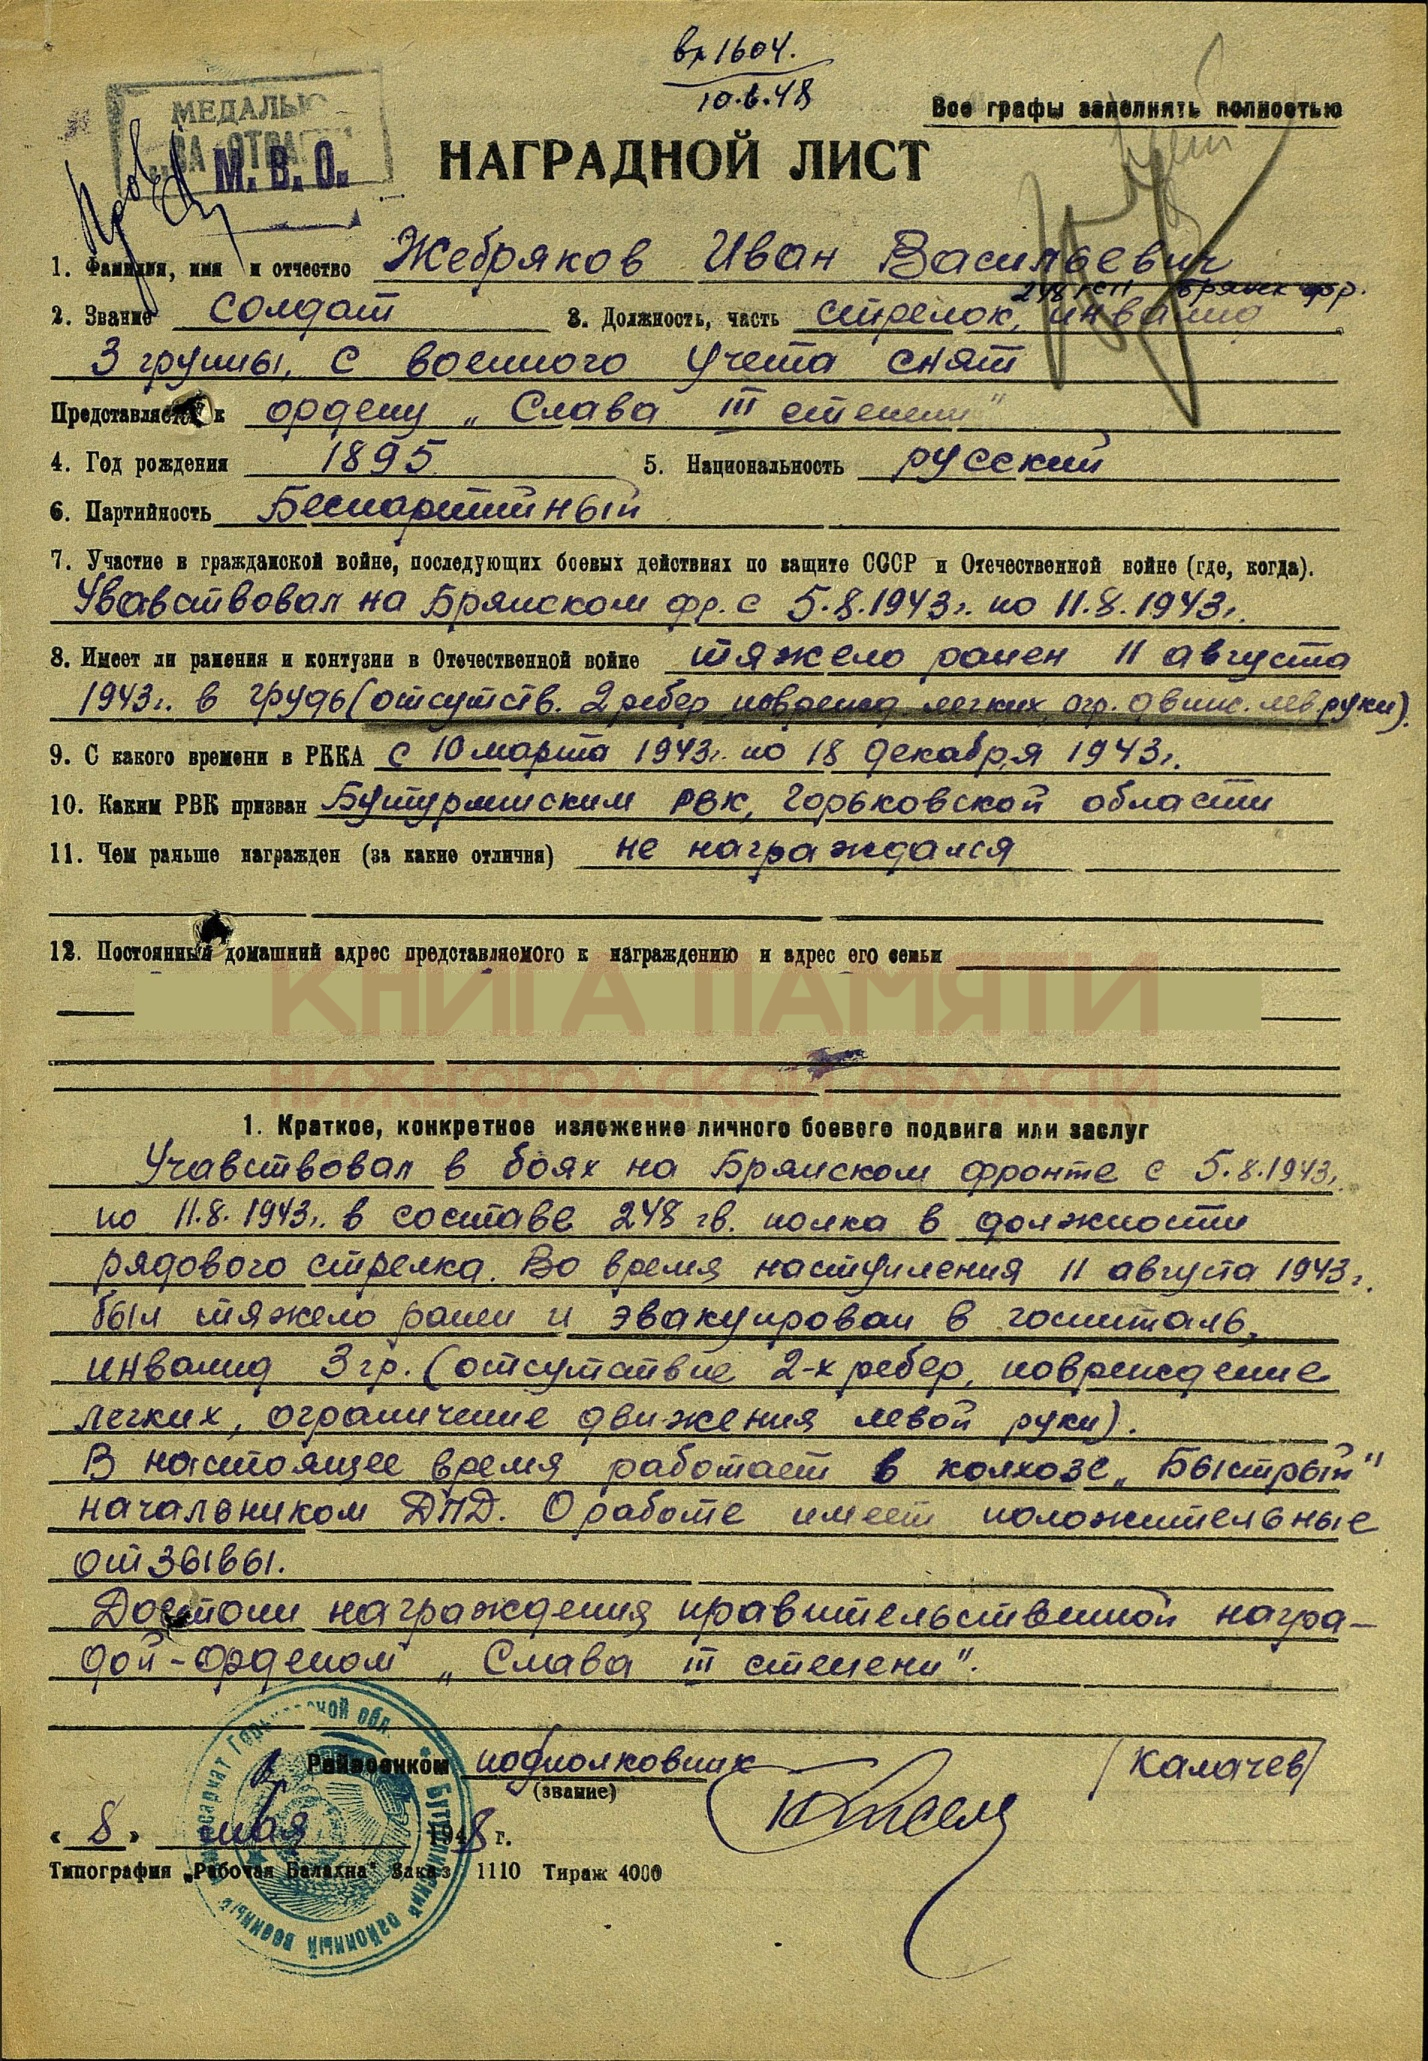 вх 1604.
10.6.48
Все графы заполнять полностью
МЕДАЛЬЮ
"ЗА ОТВАГУ"
М. В. О.
НАГРАДНОЙ ЛИСТ
1. Фамилия, имя и отчество Жебряков Иван Васильевич
248 гсп Брянск фр.
2. Звание солдат 3. Должность, часть стрелок, инвалид
3 группы, с военного учета снят
Представляется к ордену „Слава III степени"
4. Год рождения 1895 5. Национальность русский
6. Партийность Беспартийный
7. Участие в гражданской войне, последующих боевых действиях по защите СССР и Отечественной войне (где, когда).
Увавствовал на Брянском фр. с 5.8.1943г. по 11.8.1943г.
8. Имеет ли ранения и контузии в Отечественной войне тяжело ранен 11 августа
1943г. в грудь (отсутств. 2 ребер, поврежд. легких, огр. движ. лев. руки).
9. С какого времени в РККА с 10 марта 1943г. по 18 декабря 1943г.
10. Каким РВК призван Бутурлинским РВК, Горьковской области
11. Чем раньше награжден (за какие отличия) не награждался
12. Постоянный домашний адрес представляемого к награждению и адрес его семьи
КНИГА ПАМЯТИ
НИЖЕГОРОДСКОЙ ОБЛАСТИ
1. Краткое, конкретное изложение личного боевого подвига или заслуг
Учавствовал в боях на Брянском фронте с 5.8.1943г.
по 11.8.1943г. в составе 248 гв. полка в должности
рядового стрелка. Во время наступления 11 августа 1943г.
был тяжело ранен и эвакуирован в госпиталь,
инвалид 3 гр. (отсутствие 2-х ребер, повреждение
легких, ограничение движения левой руки).
В настоящее время работает в колхозе „Быстрый"
начальником ДПД. О работе имеет положительные
отзывы.
Достоин награждения правительственной награ-
дой - орденом „Слава III степени".
Райвоенком подполковник /Калачев/
(звание)
« 8 » мая 1948 г.
Типография „Рабочая Балахна" Заказ 1110 Тираж 4000
Бутурлинский районный военный комиссариат Горьковской обл.